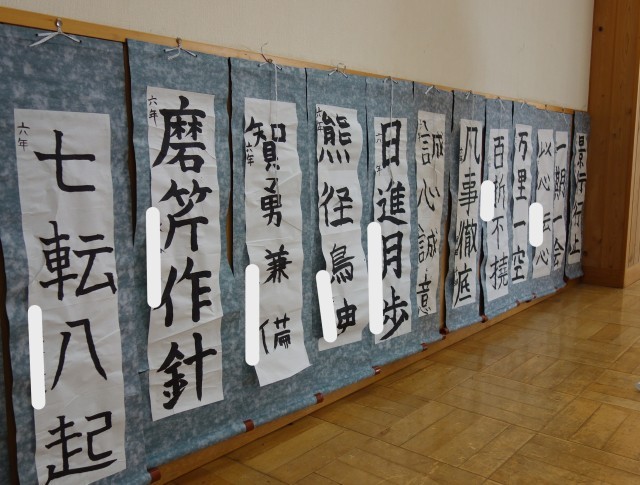 六年
七転八起
六年
磨斧作針
六年
智勇兼備
六年
熊径鳥伸
六年
日進月歩
誠心誠意
凡事徹底
百折不撓
万里一空
以心伝心
一期一会
景行行止